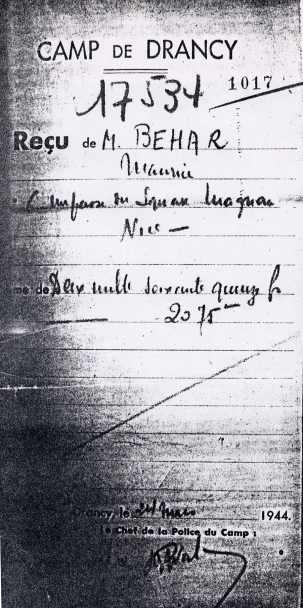 CAMP DE DRANCY
17534
1017
Reçu de M. BEHAR
Maurice
du Square Magnan
Nice —
me de Deux mille soixante quinze f
2075 —
Drancy, le 24 Mars 1944.
Le Chef de la Police du Camp :